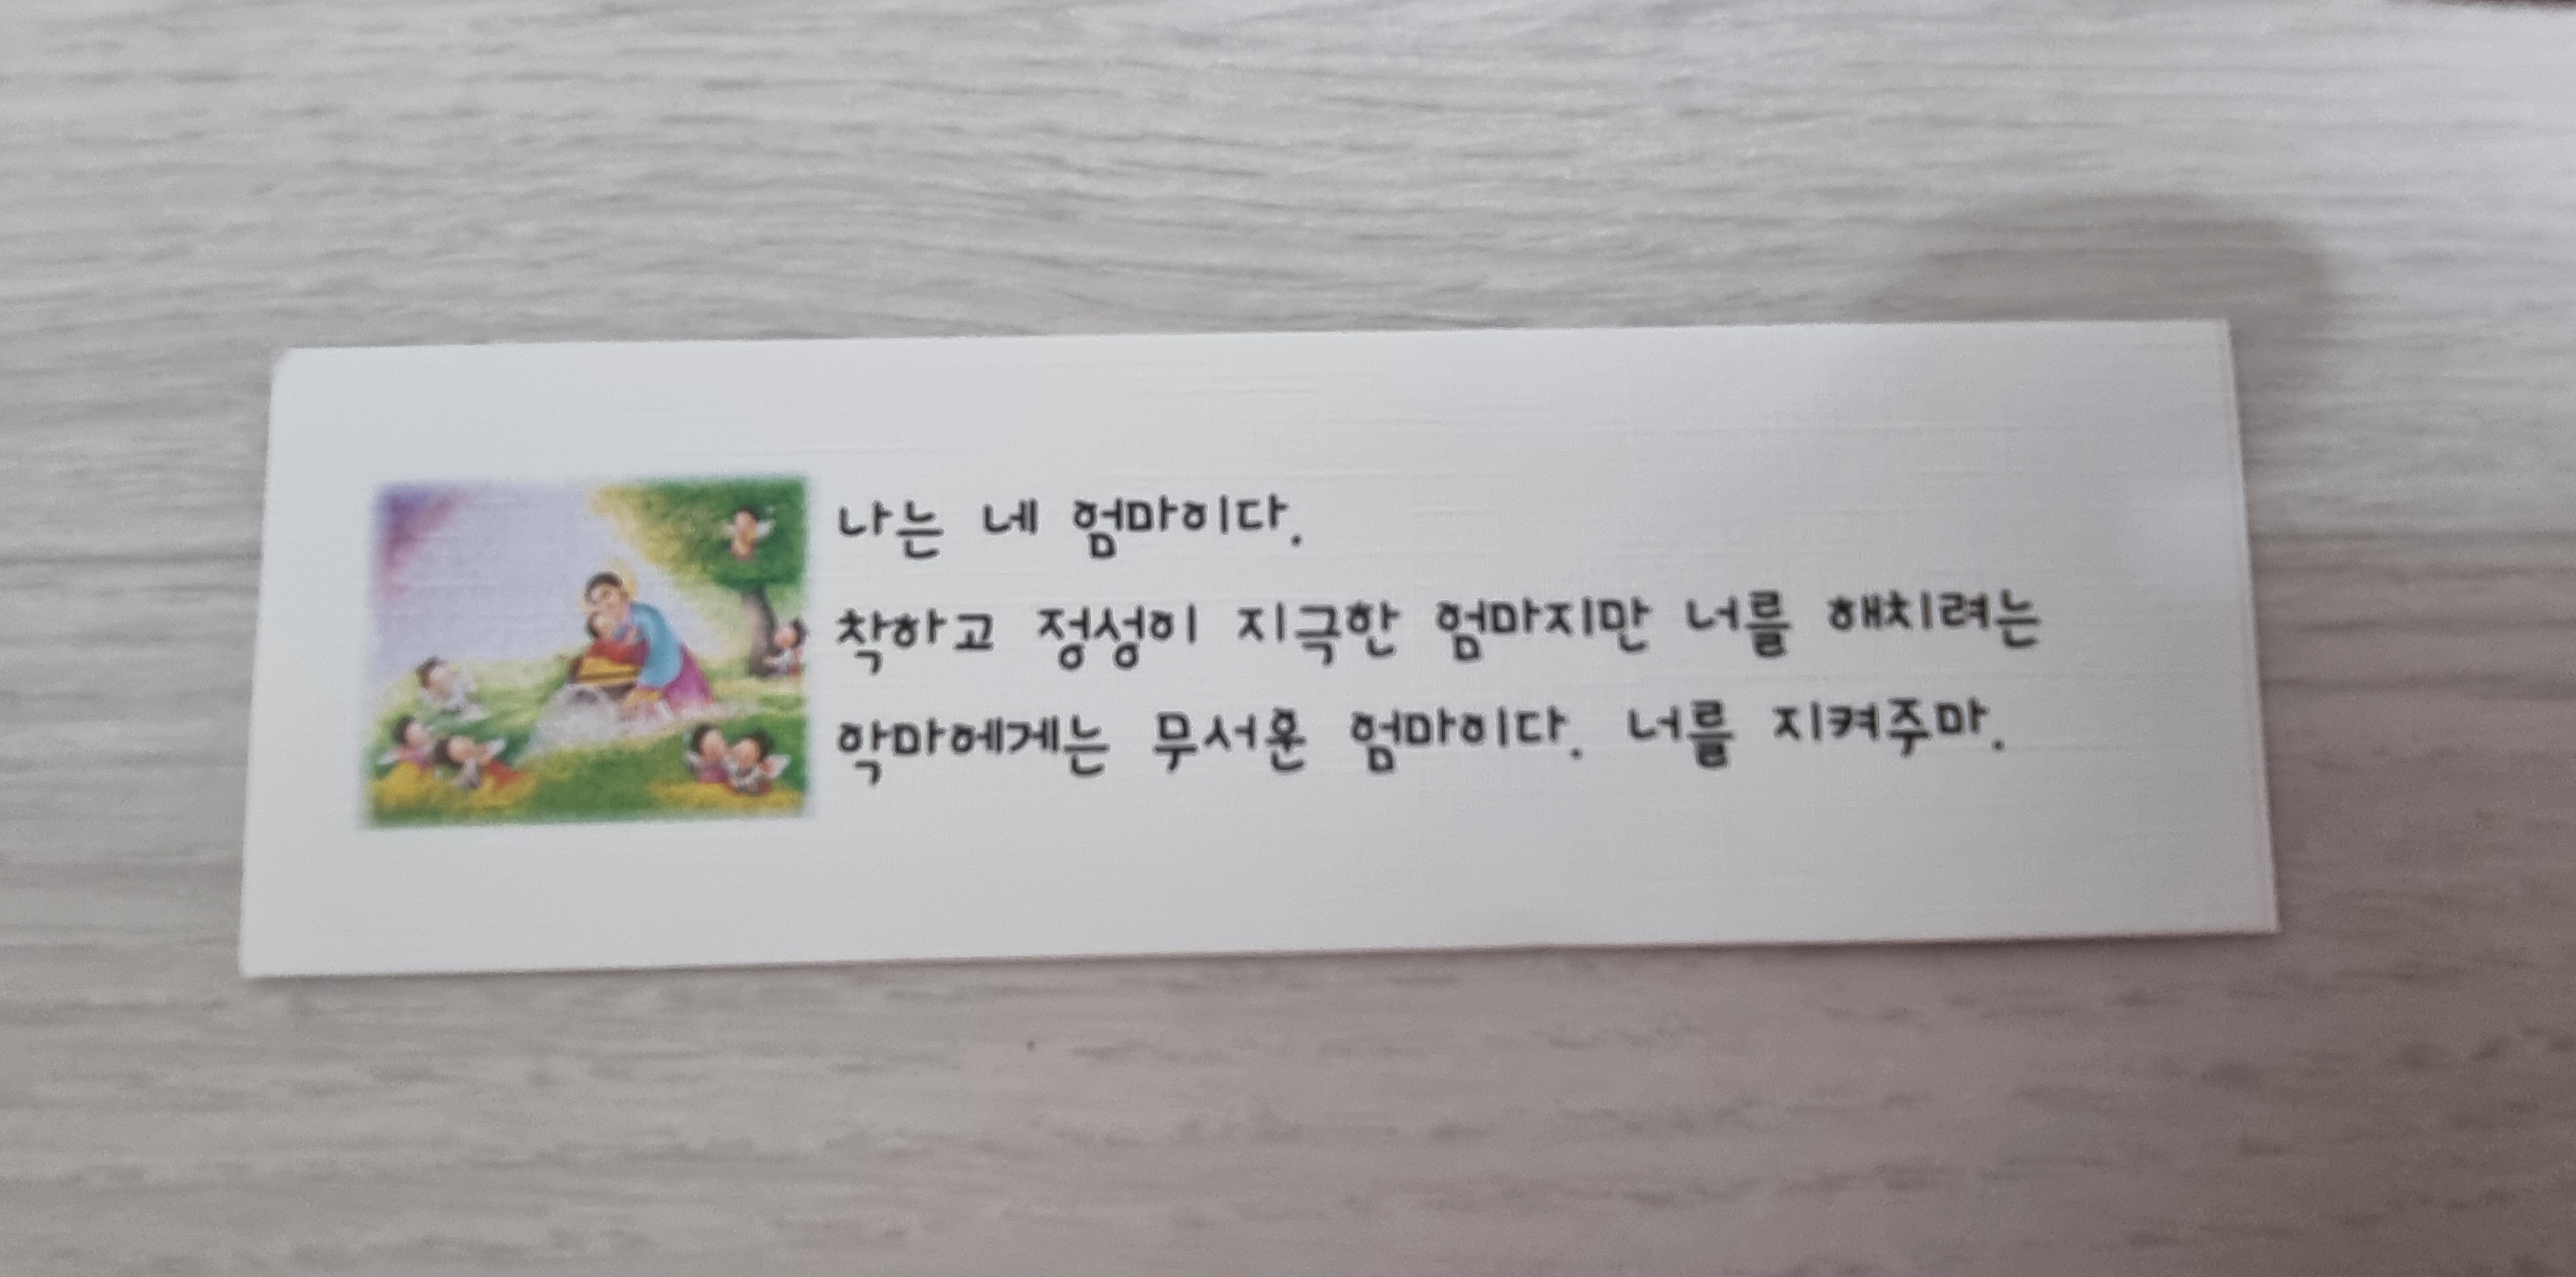 나는 네 엄마이다.
착하고 정성이 지극한 엄마지만 너를 해치려는
악마에게는 무서운 엄마이다. 너를 지켜주마.